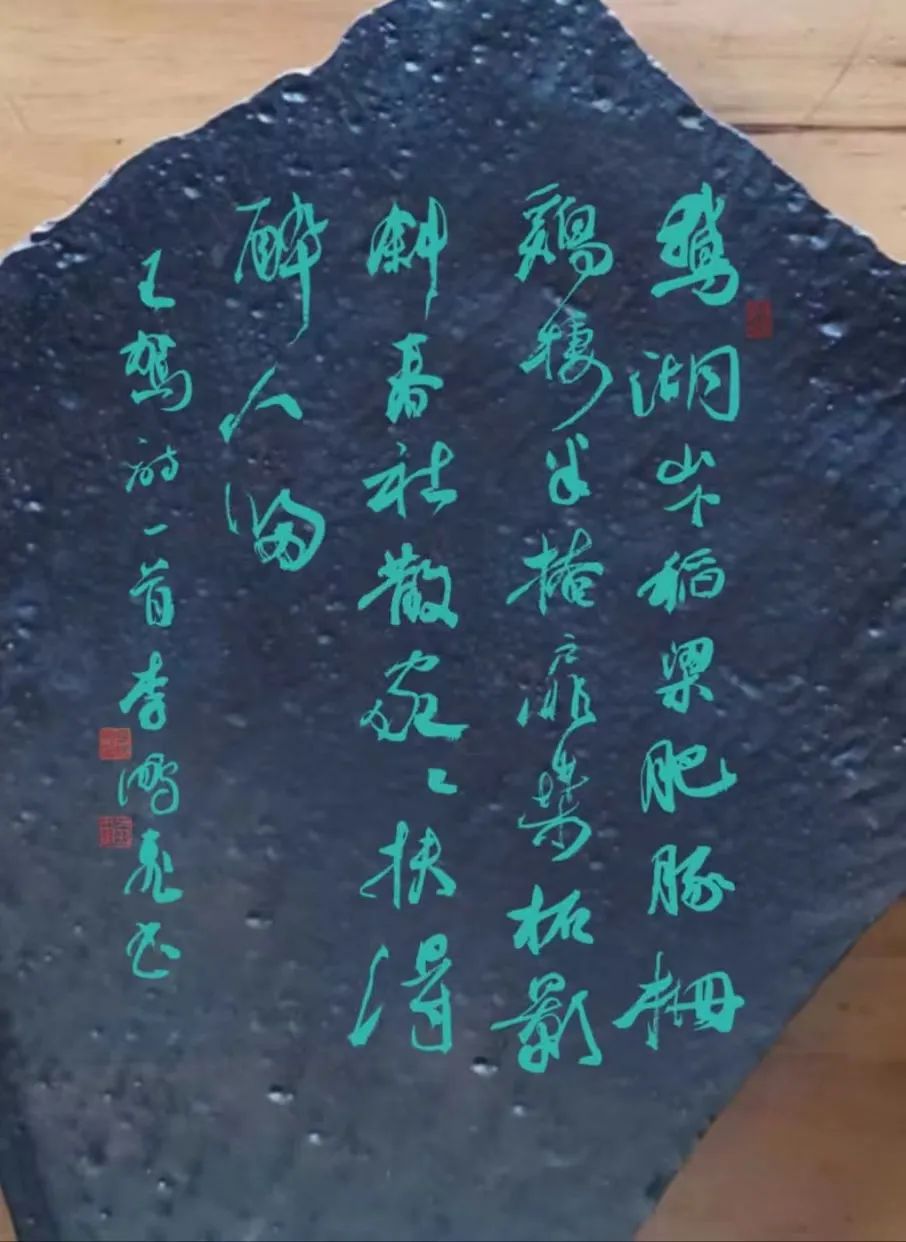 鵞湖山下稻粱肥豚栅
鷄棲半掩扉桑柘影
斜春社散家〻扶得
醉人歸
王駕詩一首李鴻书